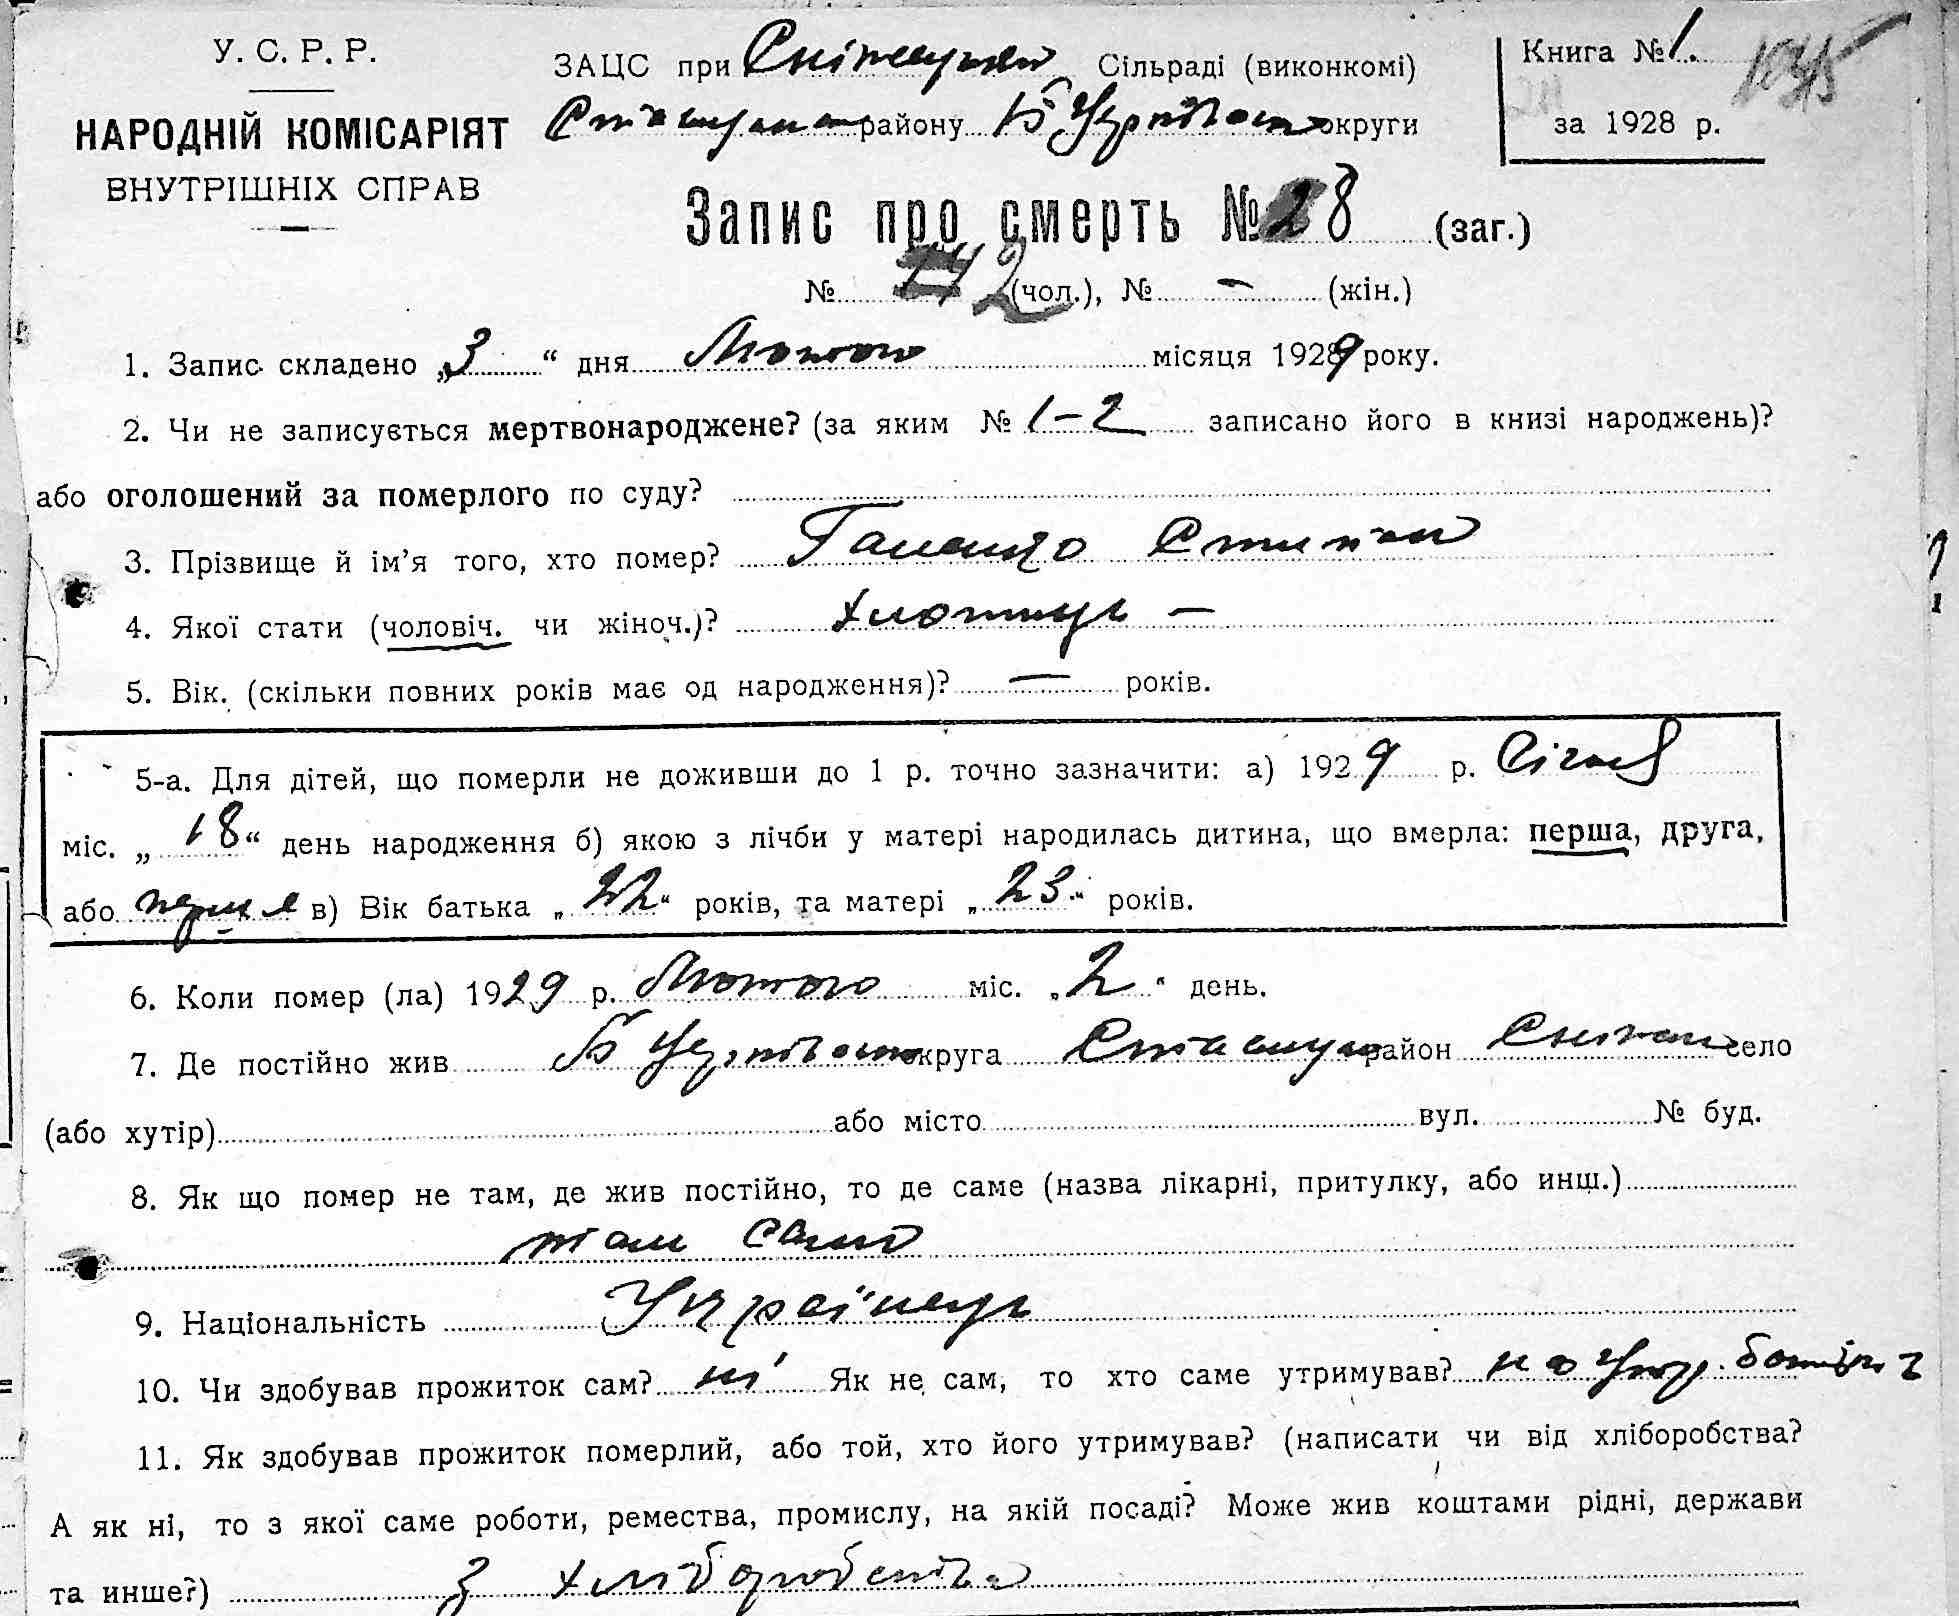 У. С. Р. Р.
НАРОДНІЙ КОМІСАРІЯТ
ВНУТРІШНІХ СПРАВ
ЗАЦС при Сільраді (виконкомі)
району Б Церківської округи
Книга № 1.
за 1928 р.
Запис про смерть № 28 (заг.)
№ 2 (чол.), № – (жін.)
1. Запис складено „3“ дня Лютого місяця 1929 року.
2. Чи не записується мертвонароджене? (за яким № 1–2 записано його в книзі народжень)?
або оголошений за померлого по суду?
3. Прізвище й ім’я того, хто помер? Степан
4. Якої стати (чоловіч. чи жіноч.)? хлопець –
5. Вік. (скільки повних років має од народження)? — років.
5-а. Для дітей, що померли не доживши до 1 р. точно зазначити: а) 1929 р. Січня
міс. „18“ день народження б) якою з лічби у матері народилась дитина, що вмерла: перша, друга,
або перша в) Вік батька „22“ років, та матері „23“ років.
6. Коли помер (ла) 1929 р. Лютого міс. „2“ день.
7. Де постійно жив Б Церківська округа район село
(або хутір) або місто вул. № буд.
8. Як що помер не там, де жив постійно, то де саме (назва лікарні, притулку, або инш.)
там само
9. Національність Українець
10. Чи здобував прожиток сам? ні Як не сам, то хто саме утримував?
11. Як здобував прожиток померлий, або той, хто його утримував? (написати чи від хліборобства?
А як ні, то з якої саме роботи, ремества, промислу, на якій посаді? Може жив коштами рідні, держави
та инше?) з хліборобства